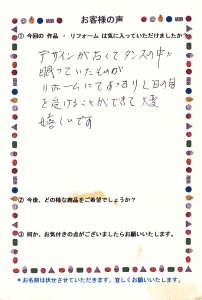 お客様の声
① 今回の 作品 ・ リフォーム は気に入っていただけましたか？
デザインが古くてタンスの中に
眠っていたものが
リホームにてすっきりし日の目
を受けることができて大変
嬉しいです
② 今後、どの様な商品をご希望でしょうか？
③ 何か、お気付きの点がございましたらお願いいたします。
＊お名前は伏せさせていただきます。宜しくお願いいたします。